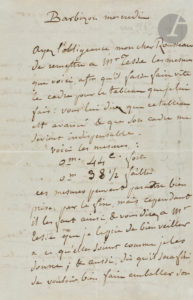 Barbizon mercredi
Ayez l'obligeance mon cher Rousseau
de remettre à Mr les mesures
que voici afin qu'il fasse faire vite
le cadre pour le tableau que je lui
fais. vous lui direz que ce tableau
est avancé & que son cadre me
devient indispensable.
Voici les mesures:
0m. 44c. fort
0m. 38½ faible
ces mesures peuvent paraître bien
prises, par le fini, mais cependant
il les faut ainsi & vous direz à Mr
que je le prie de bien veiller
à ce qu'elles soient comme je les
donne; & aussi, de
vouloir bien faire emballer son